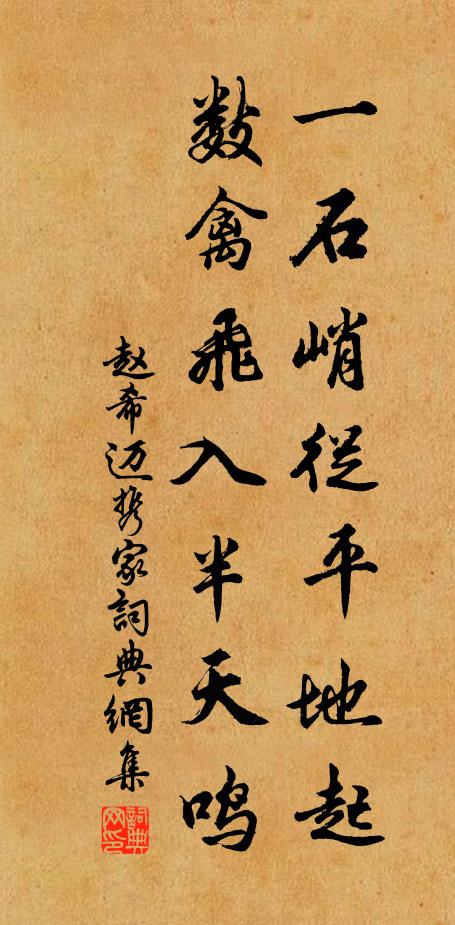 一石峭從平地起
数禽飛入半天鸣
赵希迈携家詞典網集
詞典
网印